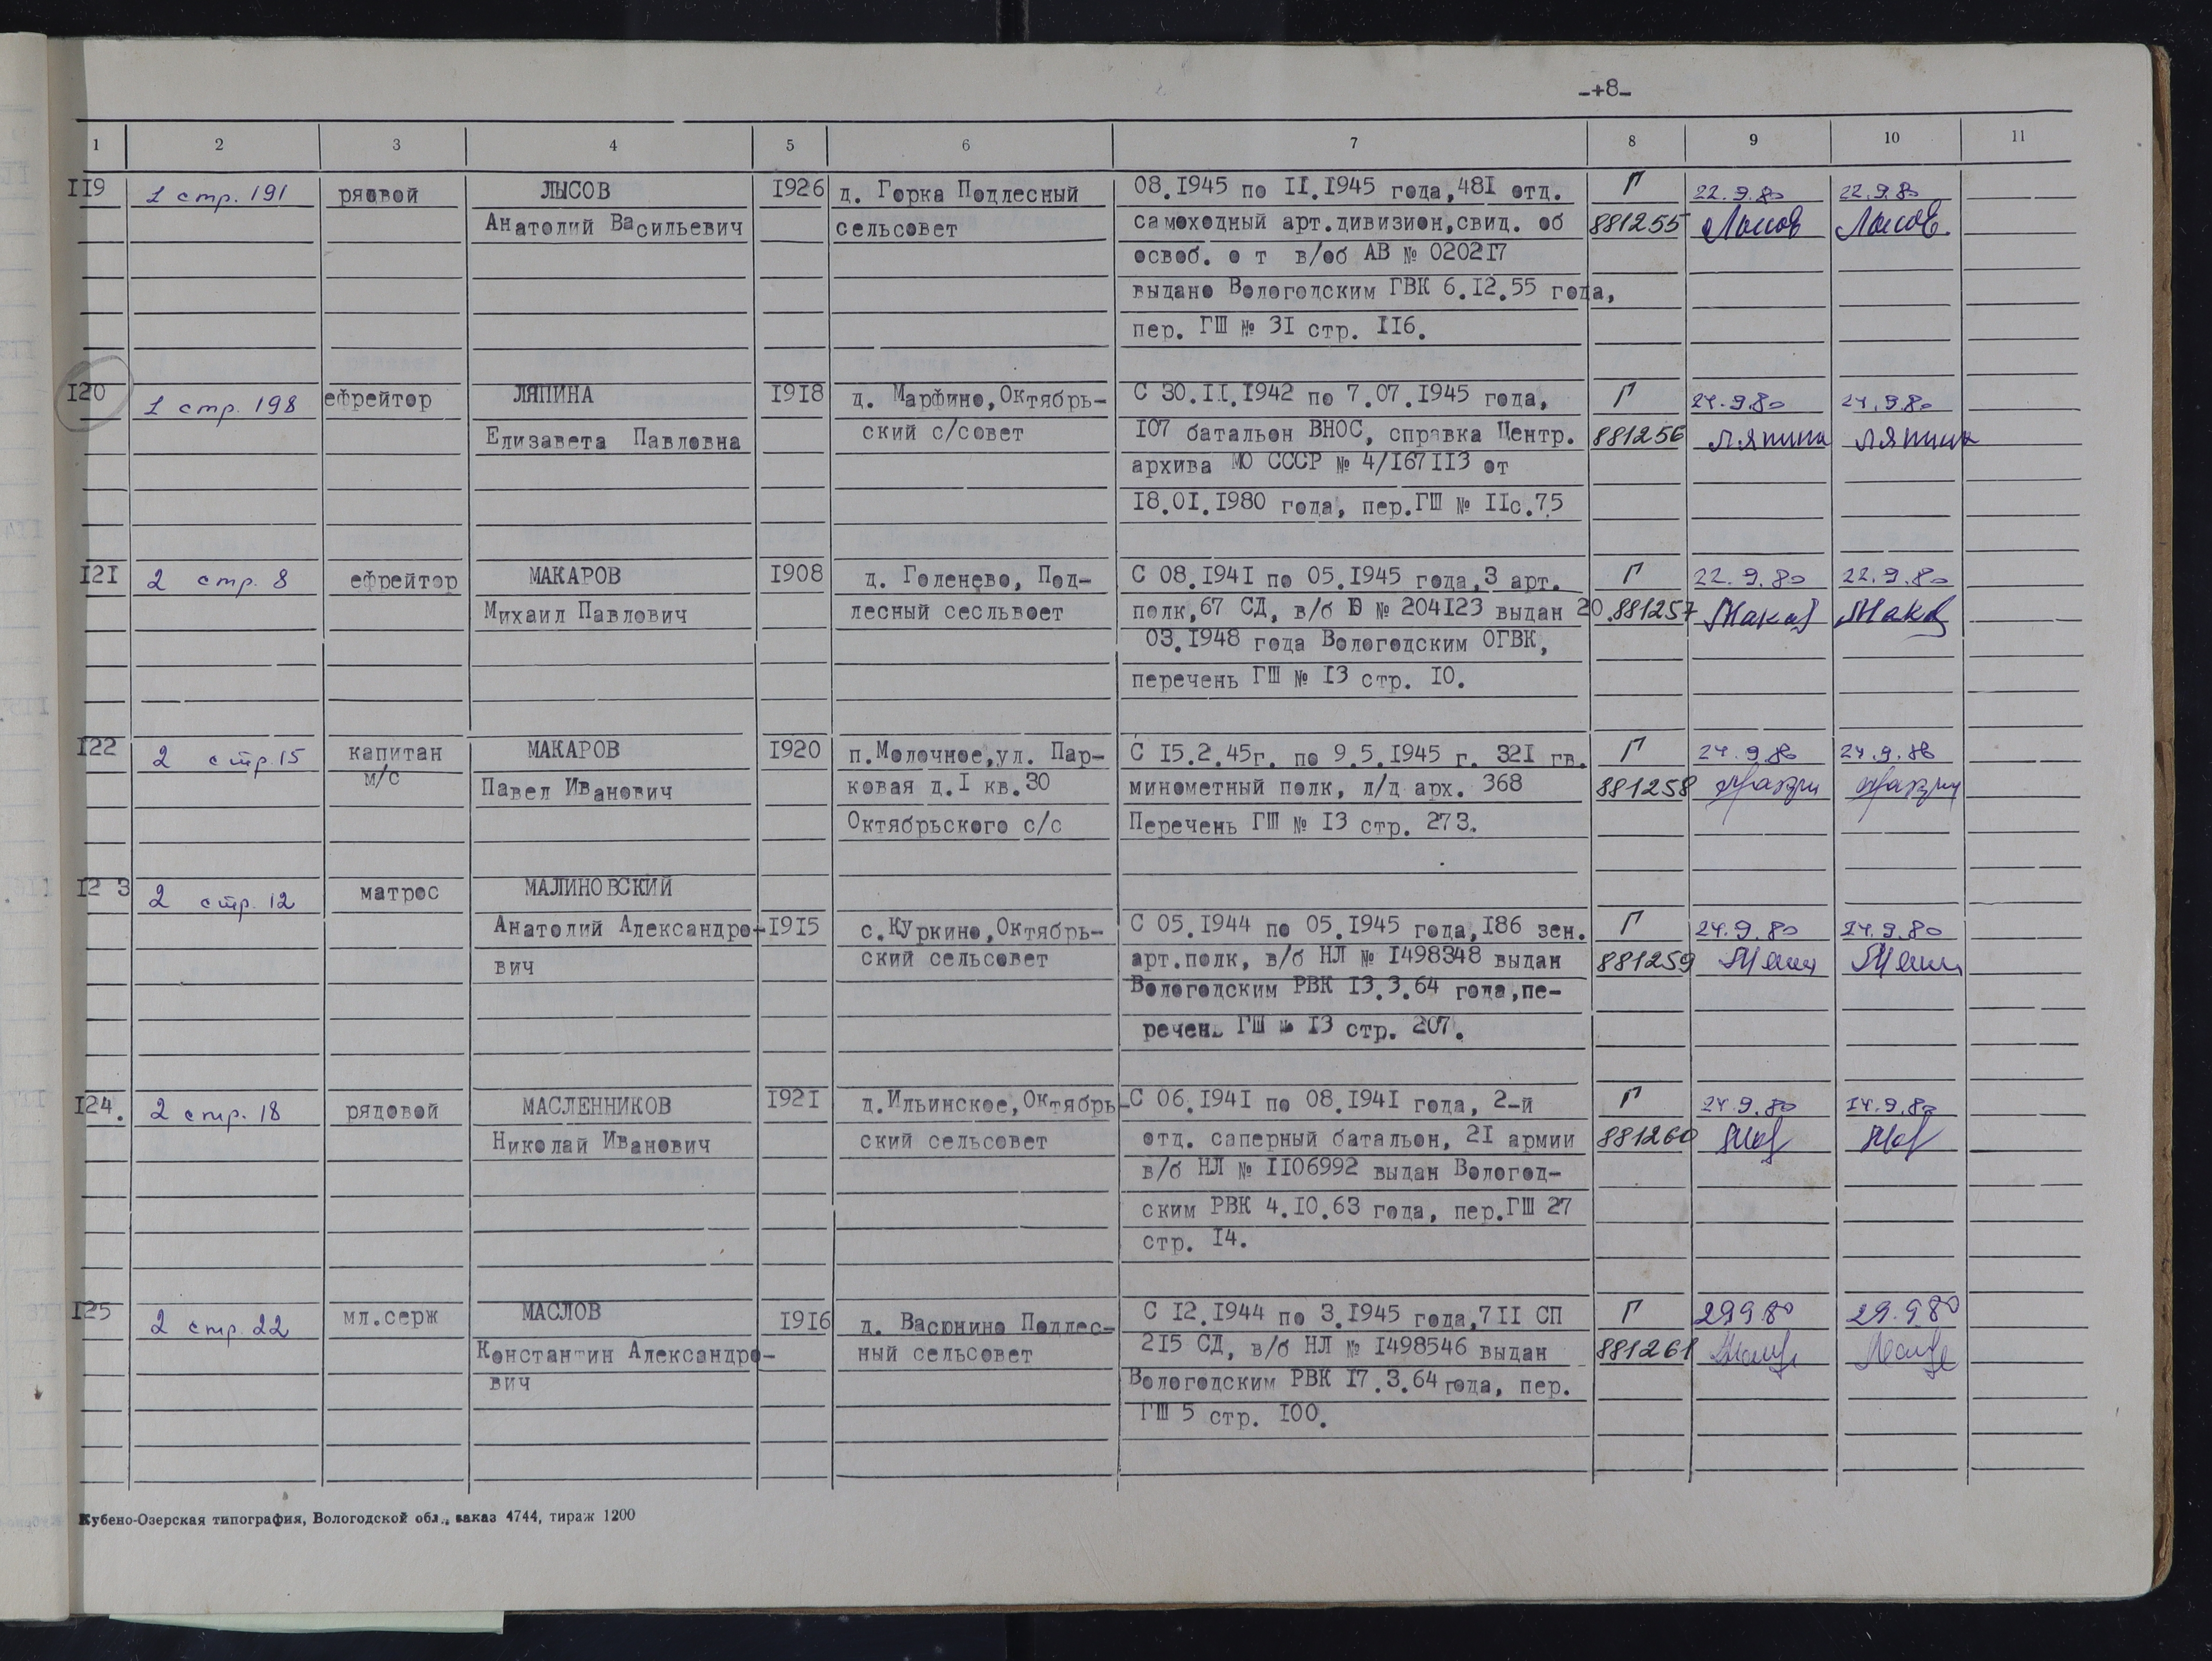 -+8-
1 2 3 4 5 6 7 8 9 10 11
II9 1 стр. 191 рядовой ЛЫСОВ I926 д. Горка Подлесный 08.I945 по II.I945 года,48I отд. Г 22.9.80 22.9.80
Анатолий Васильевич сельсовет самоходный арт.дивизион,свид. об 881255 Лысов Лысов
освоб. о т в/об АВ № 0202I7
выдано Вологодским ГВК 6.I2.55 года,
пер. ГШ № 3I стр. II6.
I20 1 стр. 198 ефрейтор ЛЯПИНА I9I8 д. Марфино,Октябрь- С 30.II.I942 по 7.07.I945 года, Г 24.9.80 24.9.80
Елизавета Павловна ский с/совет I07 батальон ВНОС, справка Центр. 881256 Ляпина Ляпина
архива МО СССР № 4/I67II3 от
I8.0I.I980 года, пер.ГШ № IIс.75
I2I 2 стр. 8 ефрейтор МАКАРОВ I908 д. Голенево, Под- С 08.I94I по 05.I945 года,3 арт. Г 22.9.80 22.9.80
Михаил Павлович лесный сесльвоет полк,67 СД, в/б Ю № 204I23 выдан 20. 881257 Макаров
03.I948 года Вологодским ОГВК,
перечень ГШ № I3 стр. I0.
I22 2 стр. 15 капитан МАКАРОВ I920 п.Молочное,ул. Пар- С I5.2.45г. по 9.5.I945 г. 32I гв. Г 24.9.80 24.9.80
м/с Павел Иванович ковая д.I кв.30 минометный полк, л/д арх. 368 881258
Октябрьского с/с Перечень ГШ № I3 стр. 273.
I2 3 2 стр. 12 матрос МАЛИНОВСКИЙ
Анатолий Александро- I9I5 с.Куркино,Октябрь- С 05.I944 по 05.I945 года,I86 зен. Г 24.9.80 24.9.80
вич ский сельсовет арт.полк, в/б НЛ № I498348 выдан 881259
Вологодским РВК I3.3.64 года,пе-
речень ГШ № I3 стр. 207.
I24. 2 стр. 18 рядовой МАСЛЕННИКОВ I92I д.Ильинское,Октябрь- С 06.I94I по 08.I94I года, 2-й Г 24.9.80 24.9.80
Николай Иванович ский сельсовет отд. саперный батальон, 2I армии 881260
в/б НЛ № II06992 выдан Вологод-
ским РВК 4.I0.63 года, пер.ГШ 27
стр. I4.
I25 2 стр. 22 мл.серж МАСЛОВ I9I6 д. Васюнино Подлес- С I2.I944 по 3.I945 года,7II СП Г 29980 29.9.80
Константин Александро- ный сельсовет 2I5 СД, в/б НЛ № I498546 выдан 881261
вич Вологодским РВК I7.3.64 года, пер.
ГШ 5 стр. I00.
Кубено-Озерская типография, Вологодской обл., заказ 4744, тираж 1200